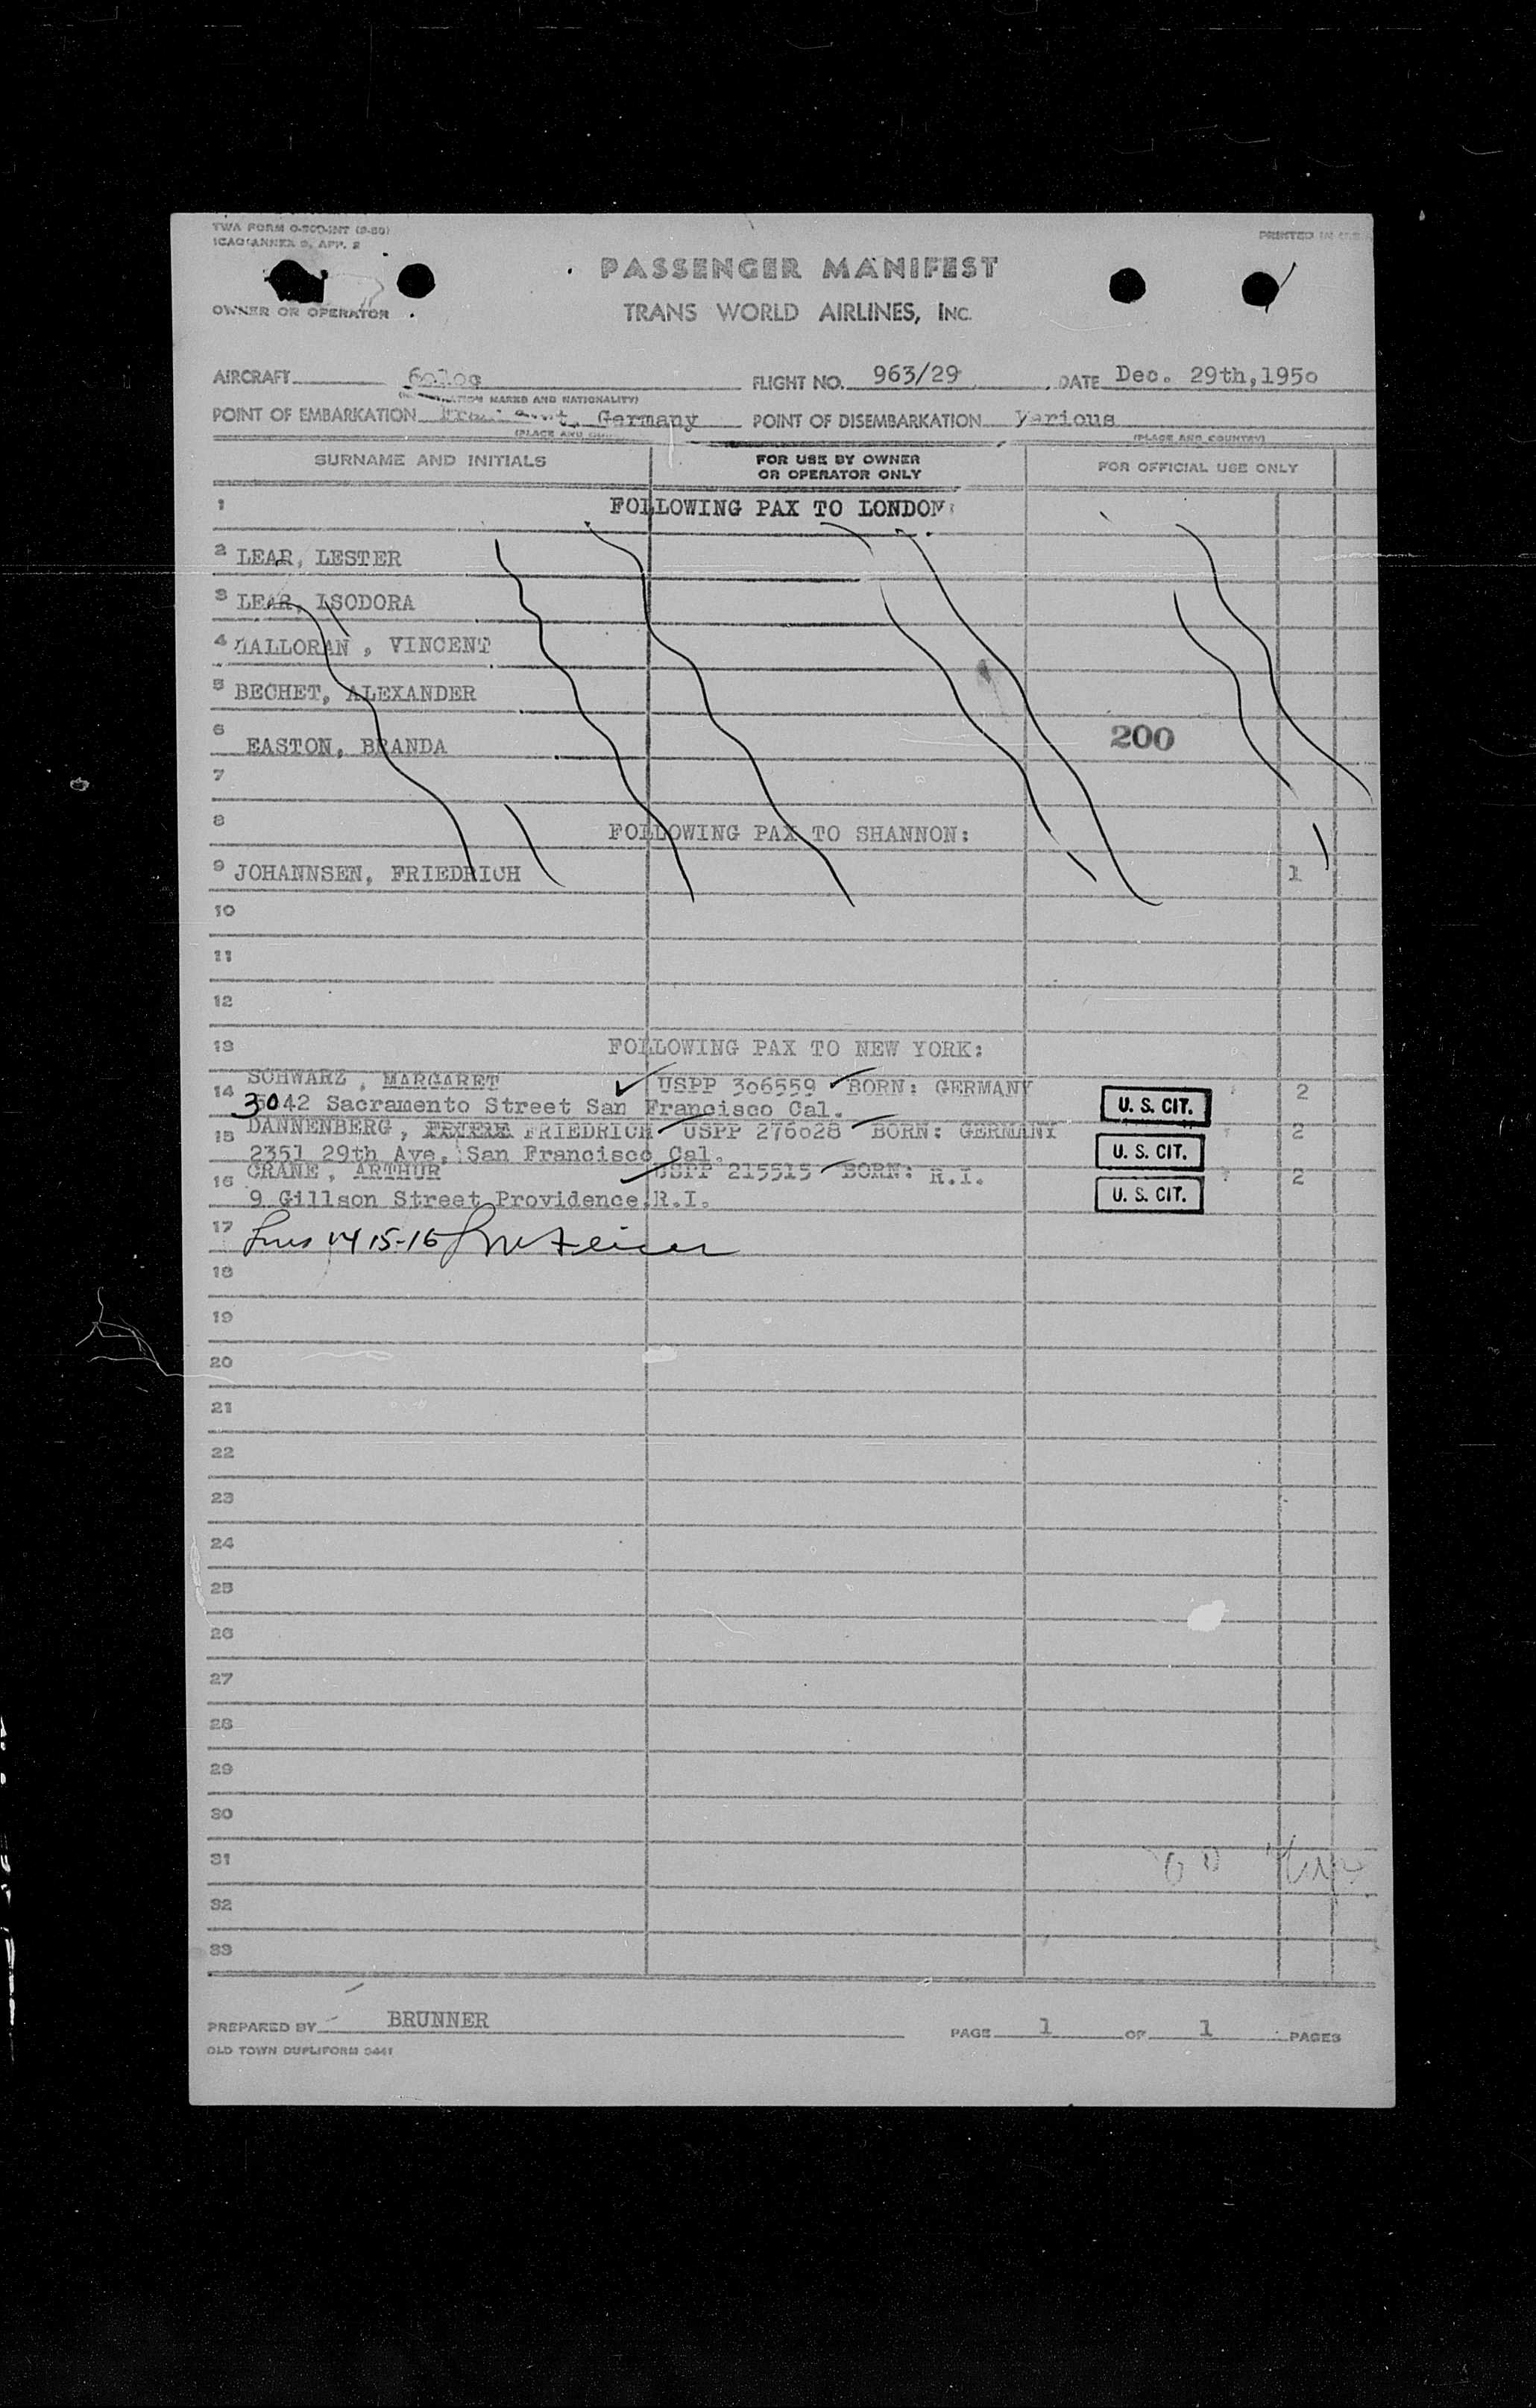 TWA FORM O-500-INT (9-50)
ICAO ANNEX 9, APP. 2
PRINTED IN U.S.A.
PASSENGER MANIFEST
OWNER OR OPERATOR
TRANS WORLD AIRLINES, INC.
AIRCRAFT FLIGHT NO. 963/29 DATE Dec. 29th,1950
MARKS AND NATIONALITY)
POINT OF EMBARKATION Germany POINT OF DISEMBARKATION Various
(PLACE AND (PLACE AND COUNTRY)
SURNAME AND INITIALS FOR USE BY OWNER OR OPERATOR ONLY FOR OFFICIAL USE ONLY
1 FOLLOWING PAX TO LONDON:
2 LEAR, LESTER
3 LEAR, ISODORA
4 VINCENT
5 BECHET, ALEXANDER
6 EASTON, BRANDA 200
7
8 FOLLOWING PAX TO SHANNON:
9 JOHANNSEN, FRIEDRICH 1
10
11
12
13 FOLLOWING PAX TO NEW YORK:
14 SCHWARZ, MARGARET USPP 306559 BORN: GERMANY 2
3042 Sacramento Street San Francisco Cal. U. S. CIT.
15 DANNENBERG, FRIEDRICH USPP 276028 BORN: GERMANY 2
2351 29th Ave. San Francisco Cal. U. S. CIT.
16 CRANE, ARTHUR USPP 215515 BORN: R.I. 2
9 Gillson Street Providence,R.I. U. S. CIT.
17 14 15-16
18
19
20
21
22
23
24
25
26
27
28
29
30
31
32
33
PREPARED BY BRUNNER PAGE 1 OF 1 PAGES
OLD TOWN DUPLIFORM 9441